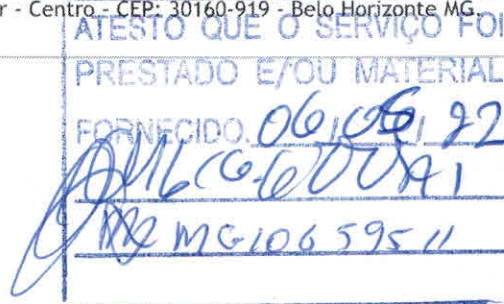 r - Centro - CEP: 30160-919 - Belo Horizonte MG.
ATESTO QUE O SERVIÇO FOI
PRESTADO E/OU MATERIAL
FORNECIDO. 06,06, 22
MG10659511